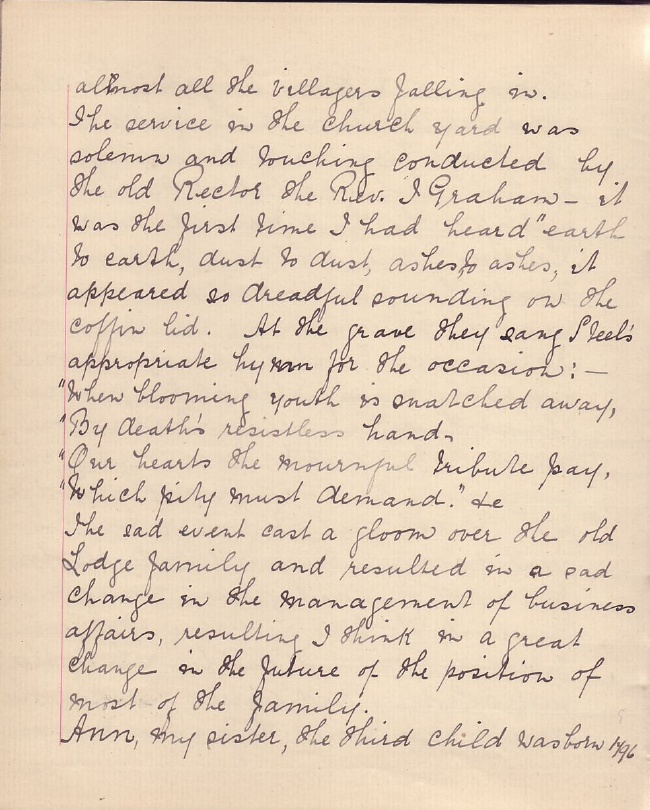 almost all the villagers falling in.
The service in the church yard was
solemn and touching conducted by
the old Rector the Rev. J Graham – it
was the first time I had heard "earth
to earth, dust to dust, ashes to ashes, it
appeared so dreadful sounding on the
coffin lid. At the grave they sang Steel's
appropriate hymn for the occasion: –
"When blooming youth is snatched away,
"By death's resistless hand.
"Our hearts the mournful tribute pay,
"Which pity must demand." &c
The sad event cast a gloom over the old
Lodge family and resulted in a sad
change in the management of business
affairs, resulting I think in a great
change in the future of the position of
most of the family.
Ann, my sister, the third child was born 1796